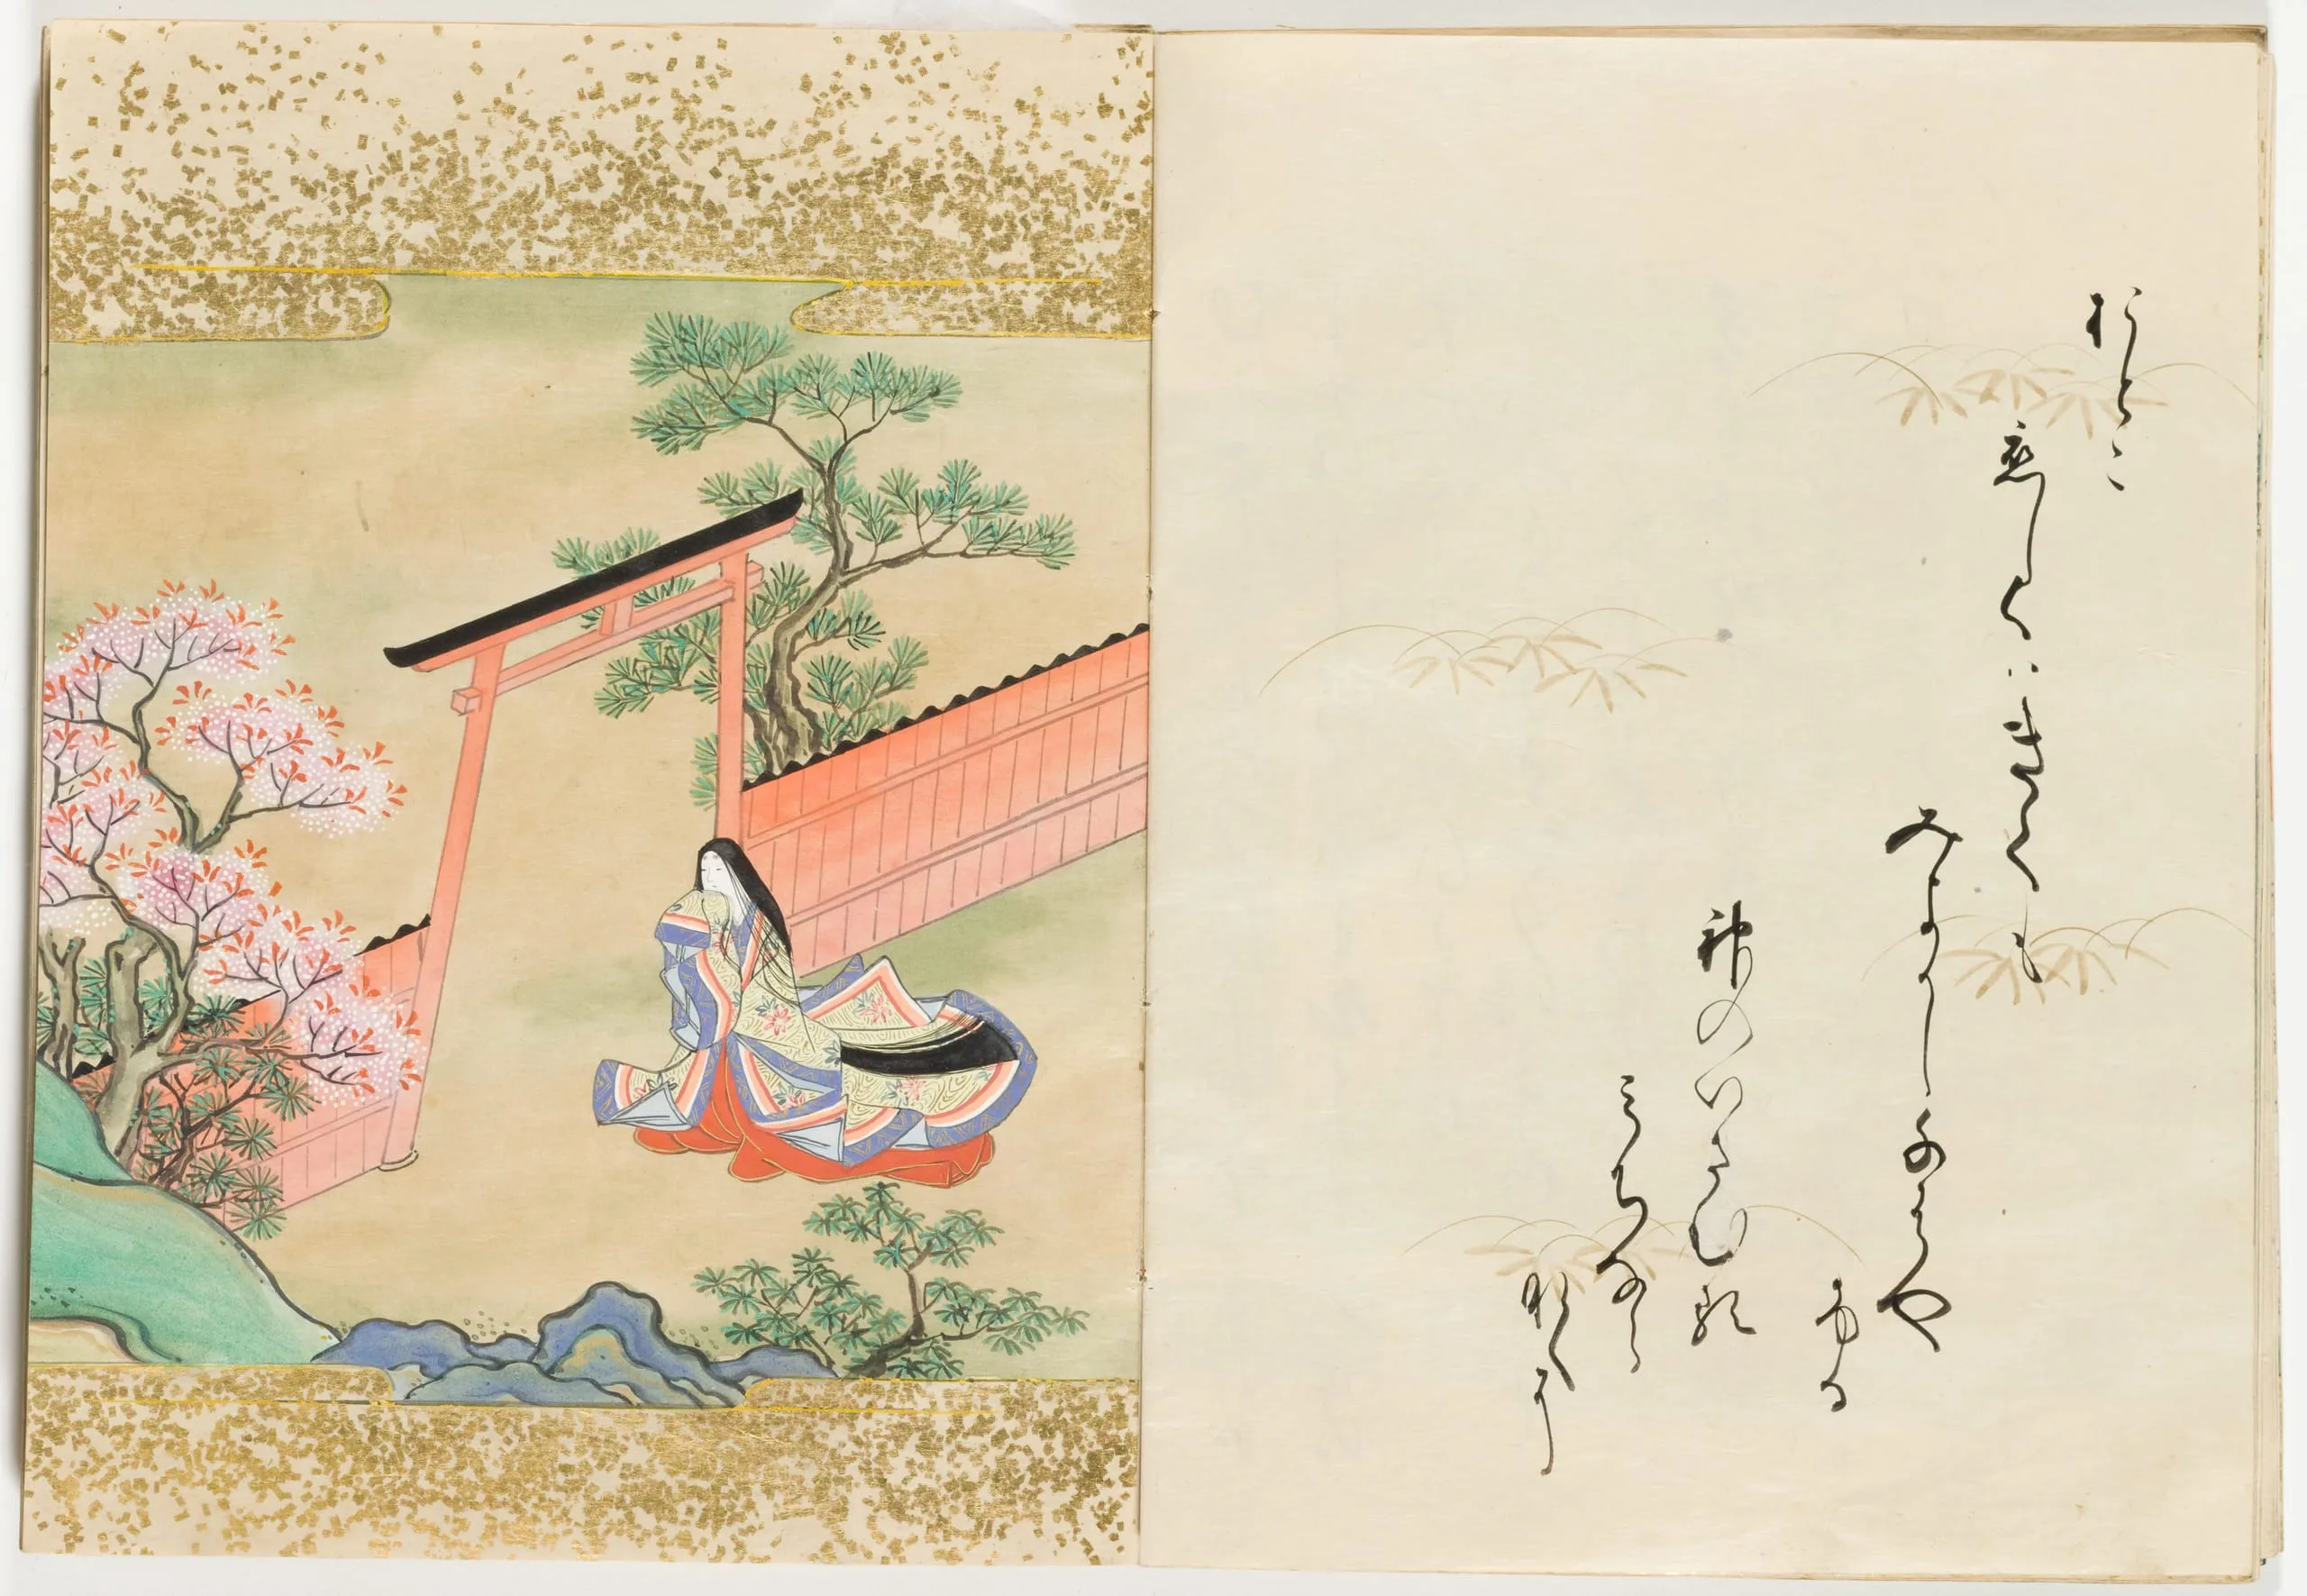 おとこ
恋しくはきても
みよかしちはや
ふる
神のいさむる
みちなら
なくに